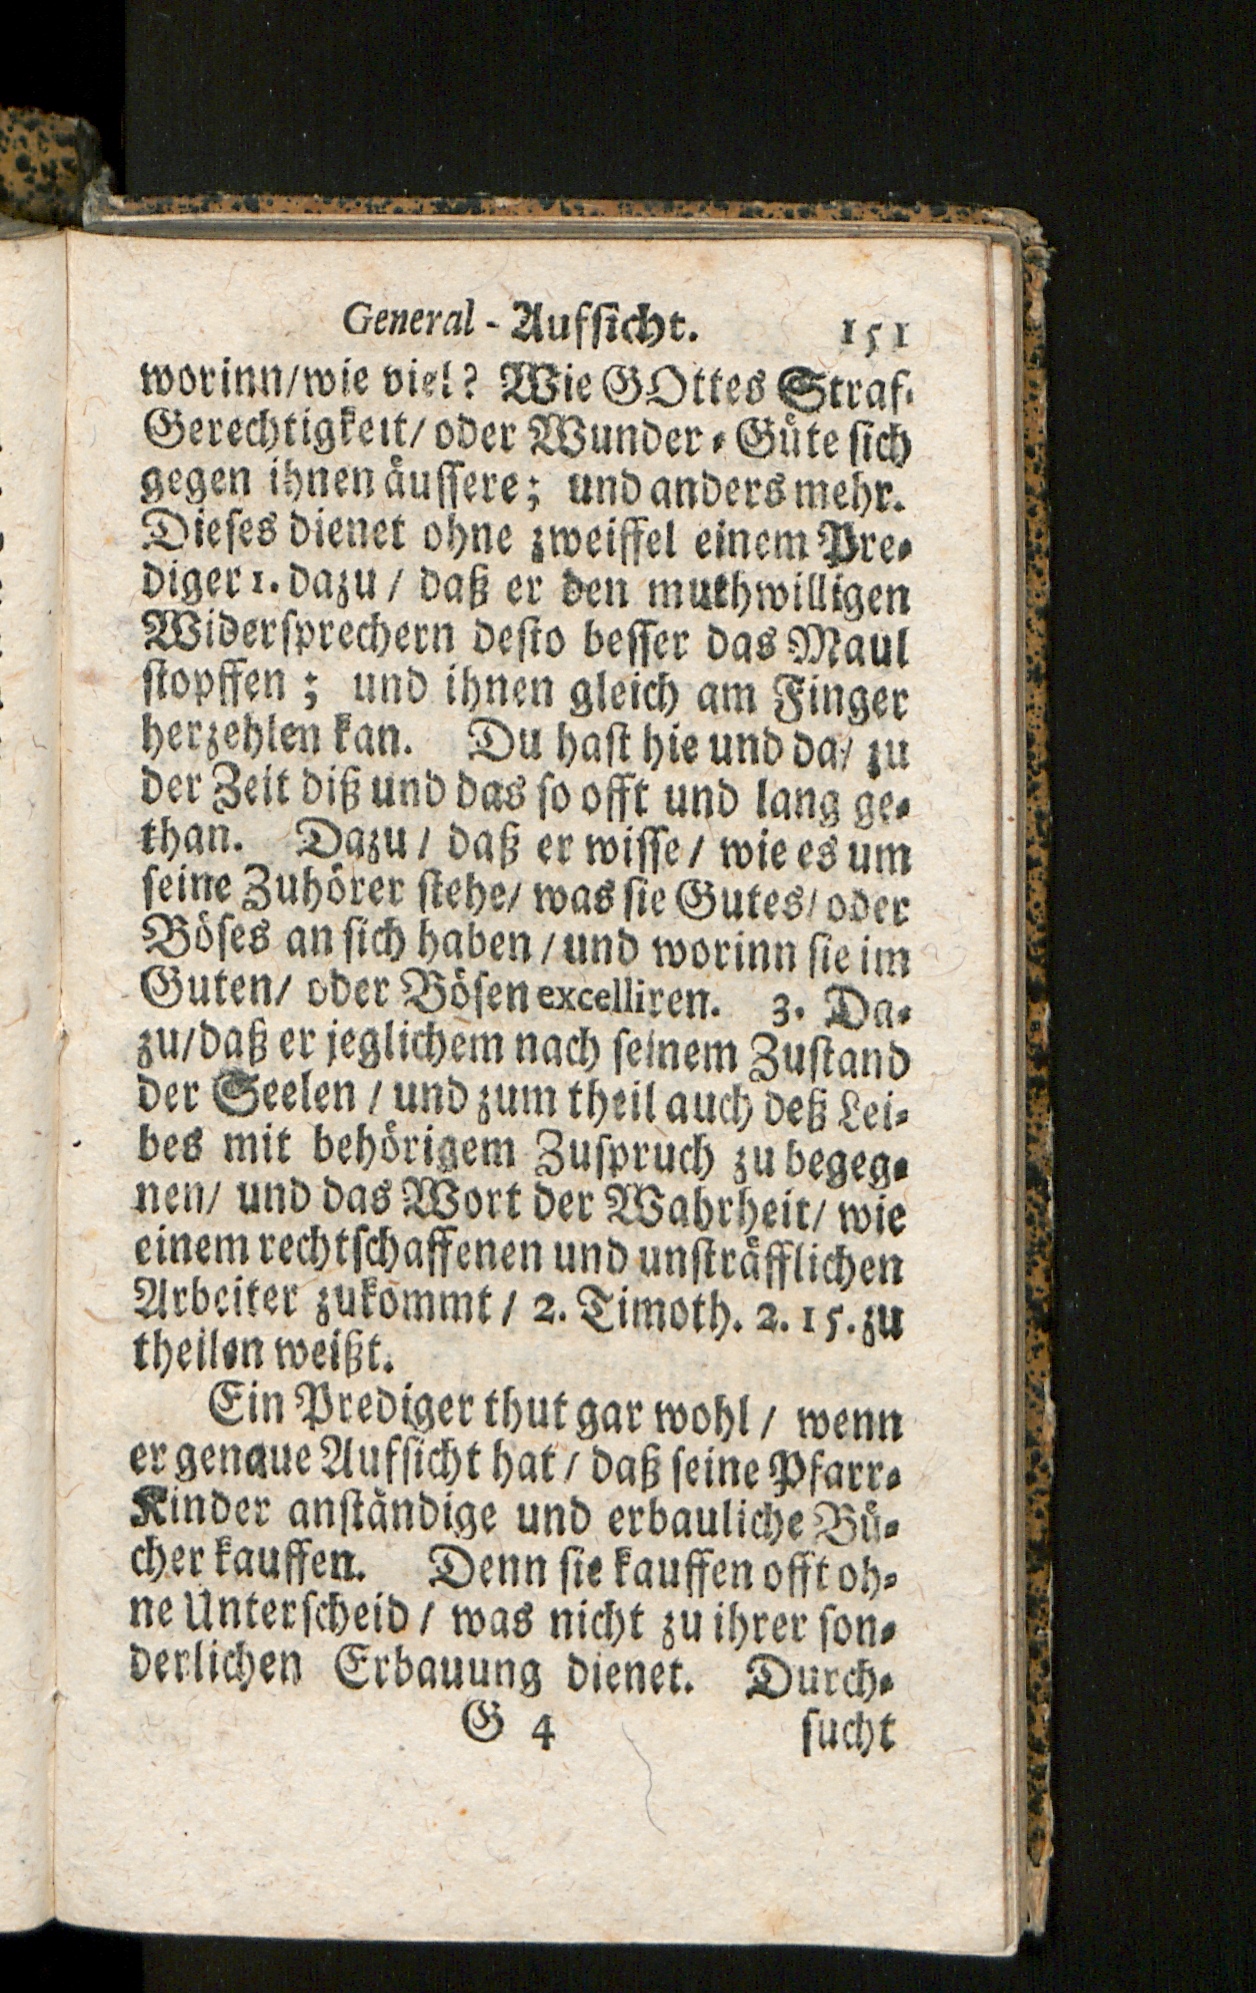 General-Aufsicht. 151
worinn/wie viel? Wie GOttes Straf-
Gerechtigkeit/ oder Wunder-Güte sich
gegen ihnen äussere; und anders mehr.
Dieses dienet ohne zweiffel einem Pre-
diger 1. dazu / daß er den muthwilligen
Widersprechern desto besser das Maul
stopffen ; und ihnen gleich am Finger
herzehlen kan. Du hast hie und da/ zu
der Zeit diß und das so offt und lang ge-
than. Dazu / daß er wisse / wie es um
seine Zuhörer stehe/ was sie Gutes/ oder
Böses an sich haben / und worinn sie im
Guten/ oder Bösen excelliren. 3. Da-
zu/daß er jeglichem nach seinem Zustand
der Seelen / und zum theil auch deß Lei-
bes mit behörigem Zuspruch zu begeg-
nen/ und das Wort der Wahrheit/ wie
einem rechtschaffenen und unsträfflichen
Arbeiter zukommt / 2. Timoth. 2. 15. zu
theilen weißt.
Ein Prediger thut gar wohl / wenn
er genaue Aufsicht hat / daß seine Pfarr-
Kinder anständige und erbauliche Bü-
cher kauffen. Denn sie kauffen offt oh-
ne Unterscheid / was nicht zu ihrer son-
derlichen Erbauung dienet. Durch-
G 4 sucht